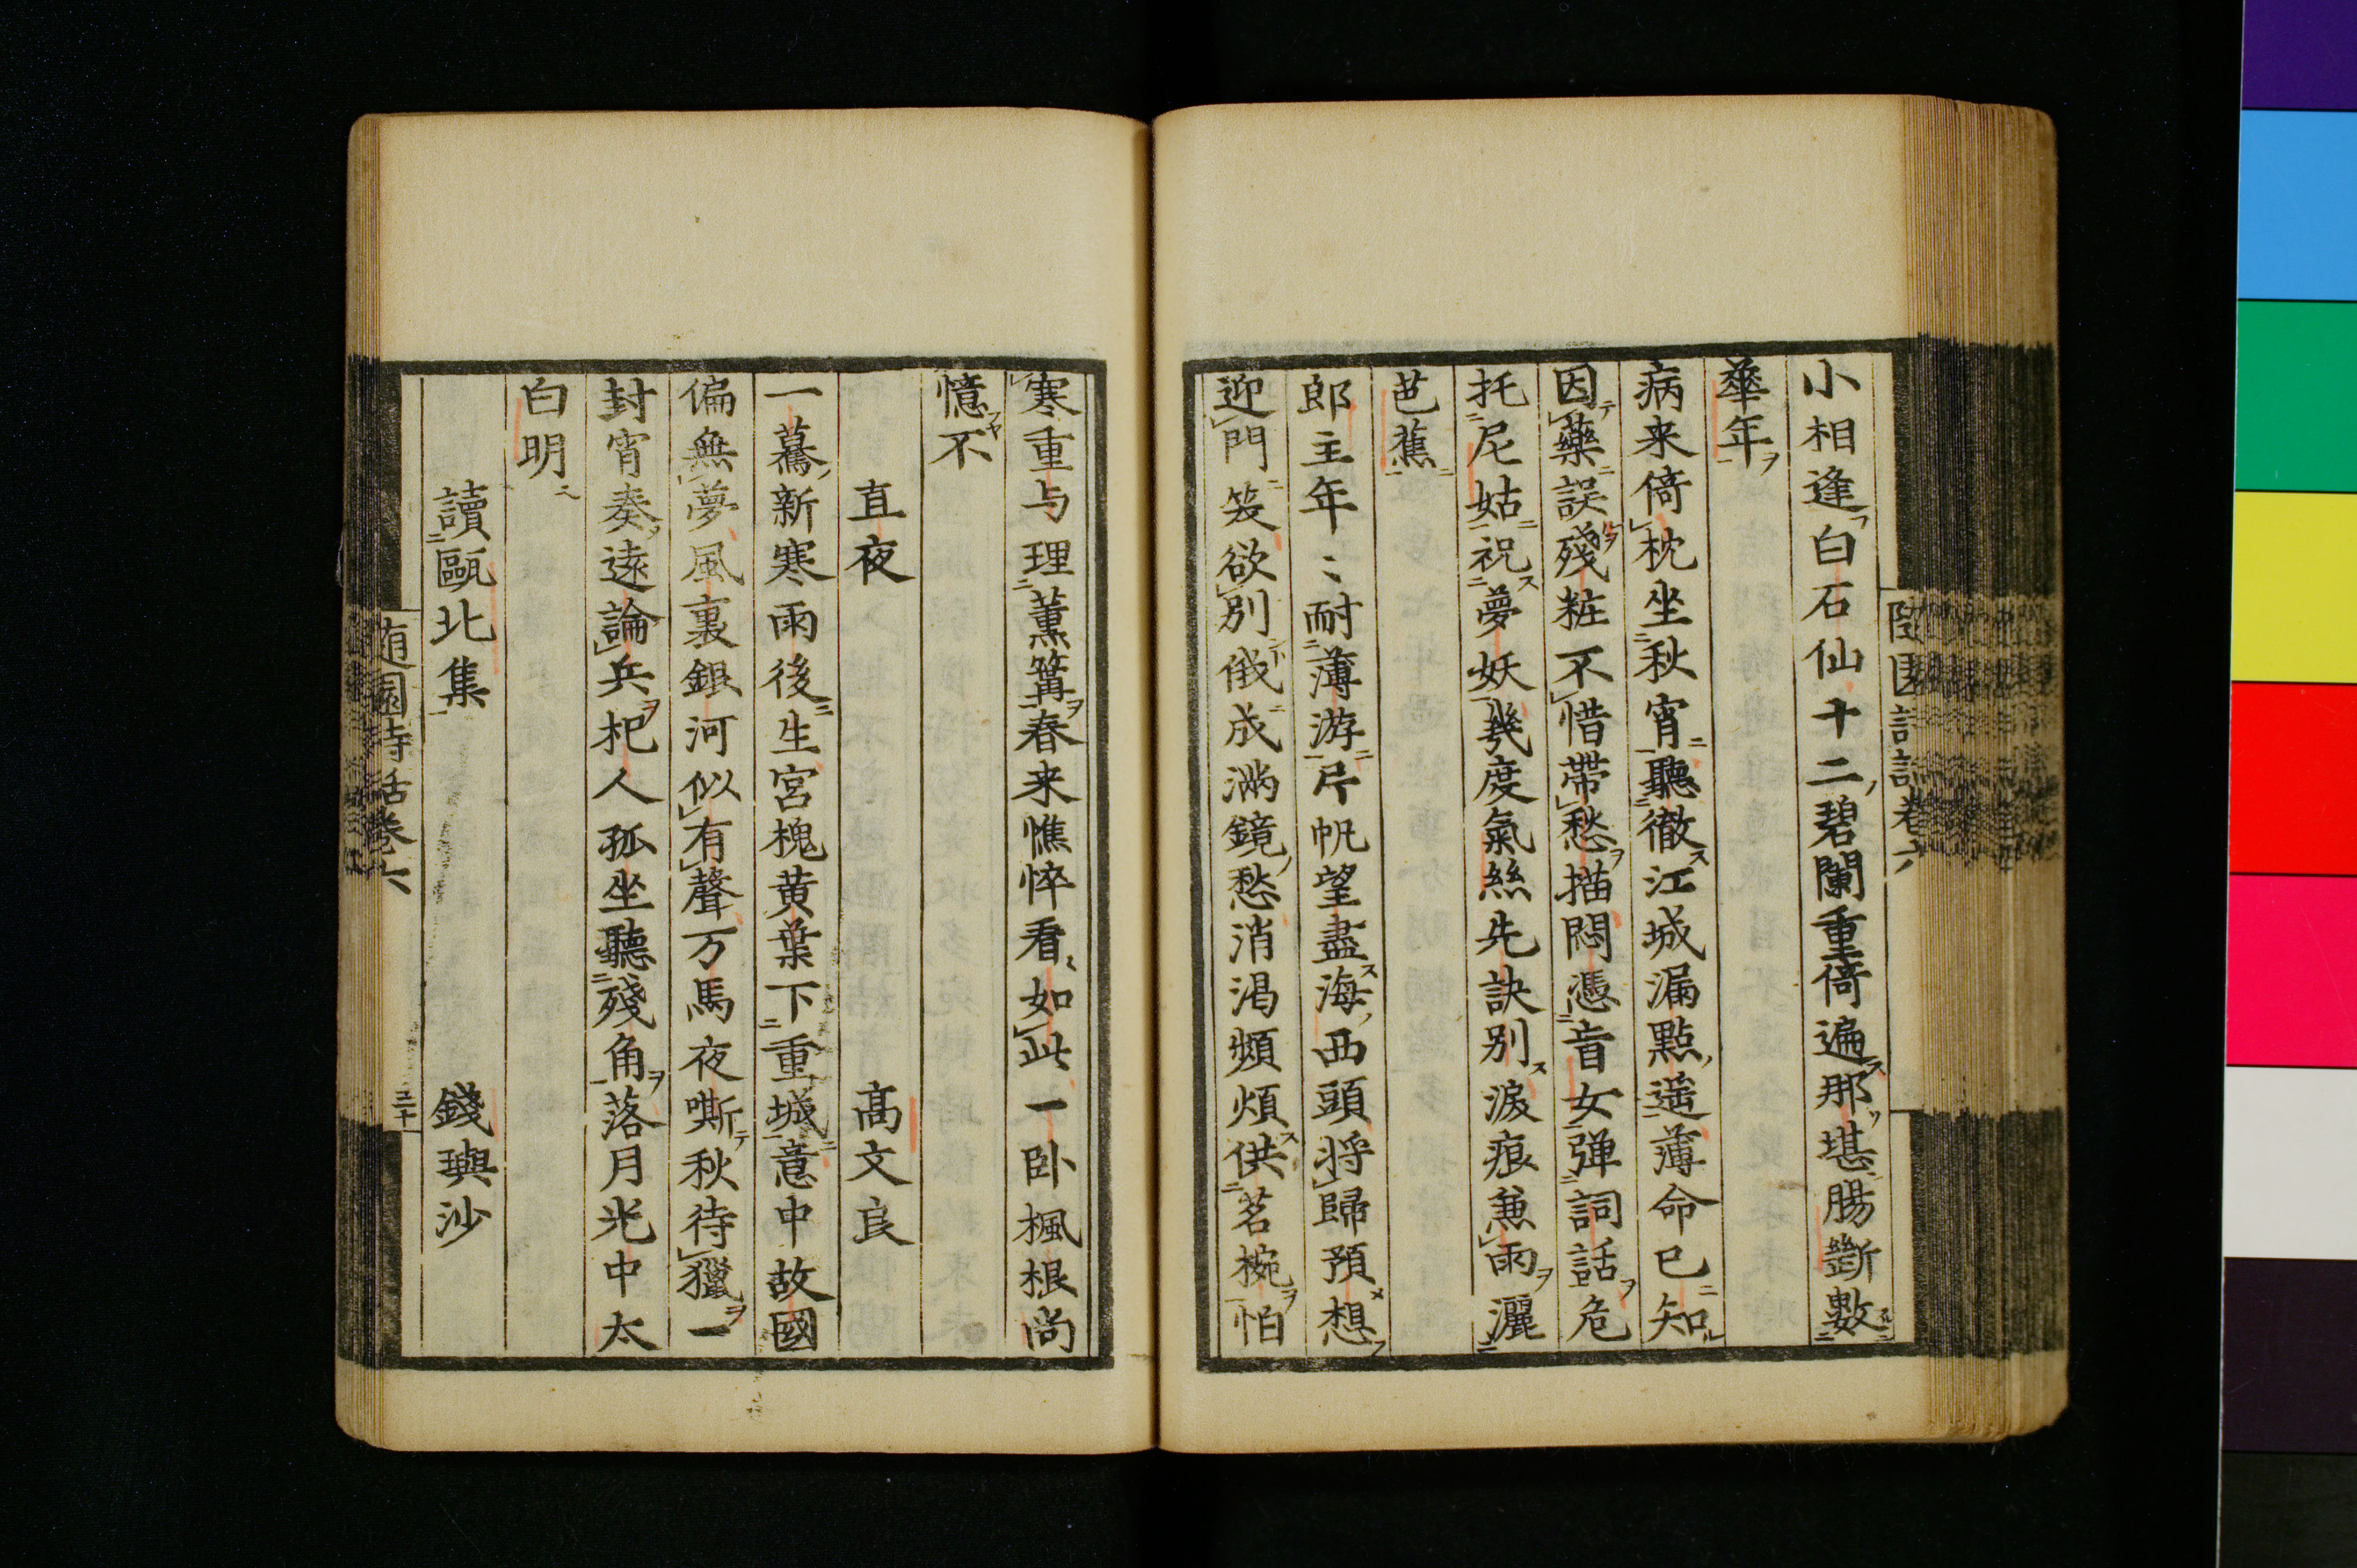 小相逢白石仙十二碧闌重倚遍那堪腸斷數
華年
病来倚枕坐秋宵聽徹江城漏點遥薄命已知
因藥誤殘粧不惜帶愁描悶憑盲女弾詞話危
托尼姑祝夢妖幾度氣絲先訣別淚痕兼雨灑
芭蕉
郎主年〻耐薄游片帆望盡海西頭将歸預想
迎門笑欲別俄成滿鏡愁消渇頻煩供茗椀怕
寒重与理薰篝春来憔悴看如此一卧楓根尚
憶不
直夜 高文良
一驀新寒雨後生宮槐黄葉下重城意中故國
偏無夢風裏銀河似有聲万馬夜嘶秋待獵一
封宵奏遠論兵杞人孤坐聽殘角落月光中太
白明
讀甌北集 錢璵沙
随園詩話巻六 三十